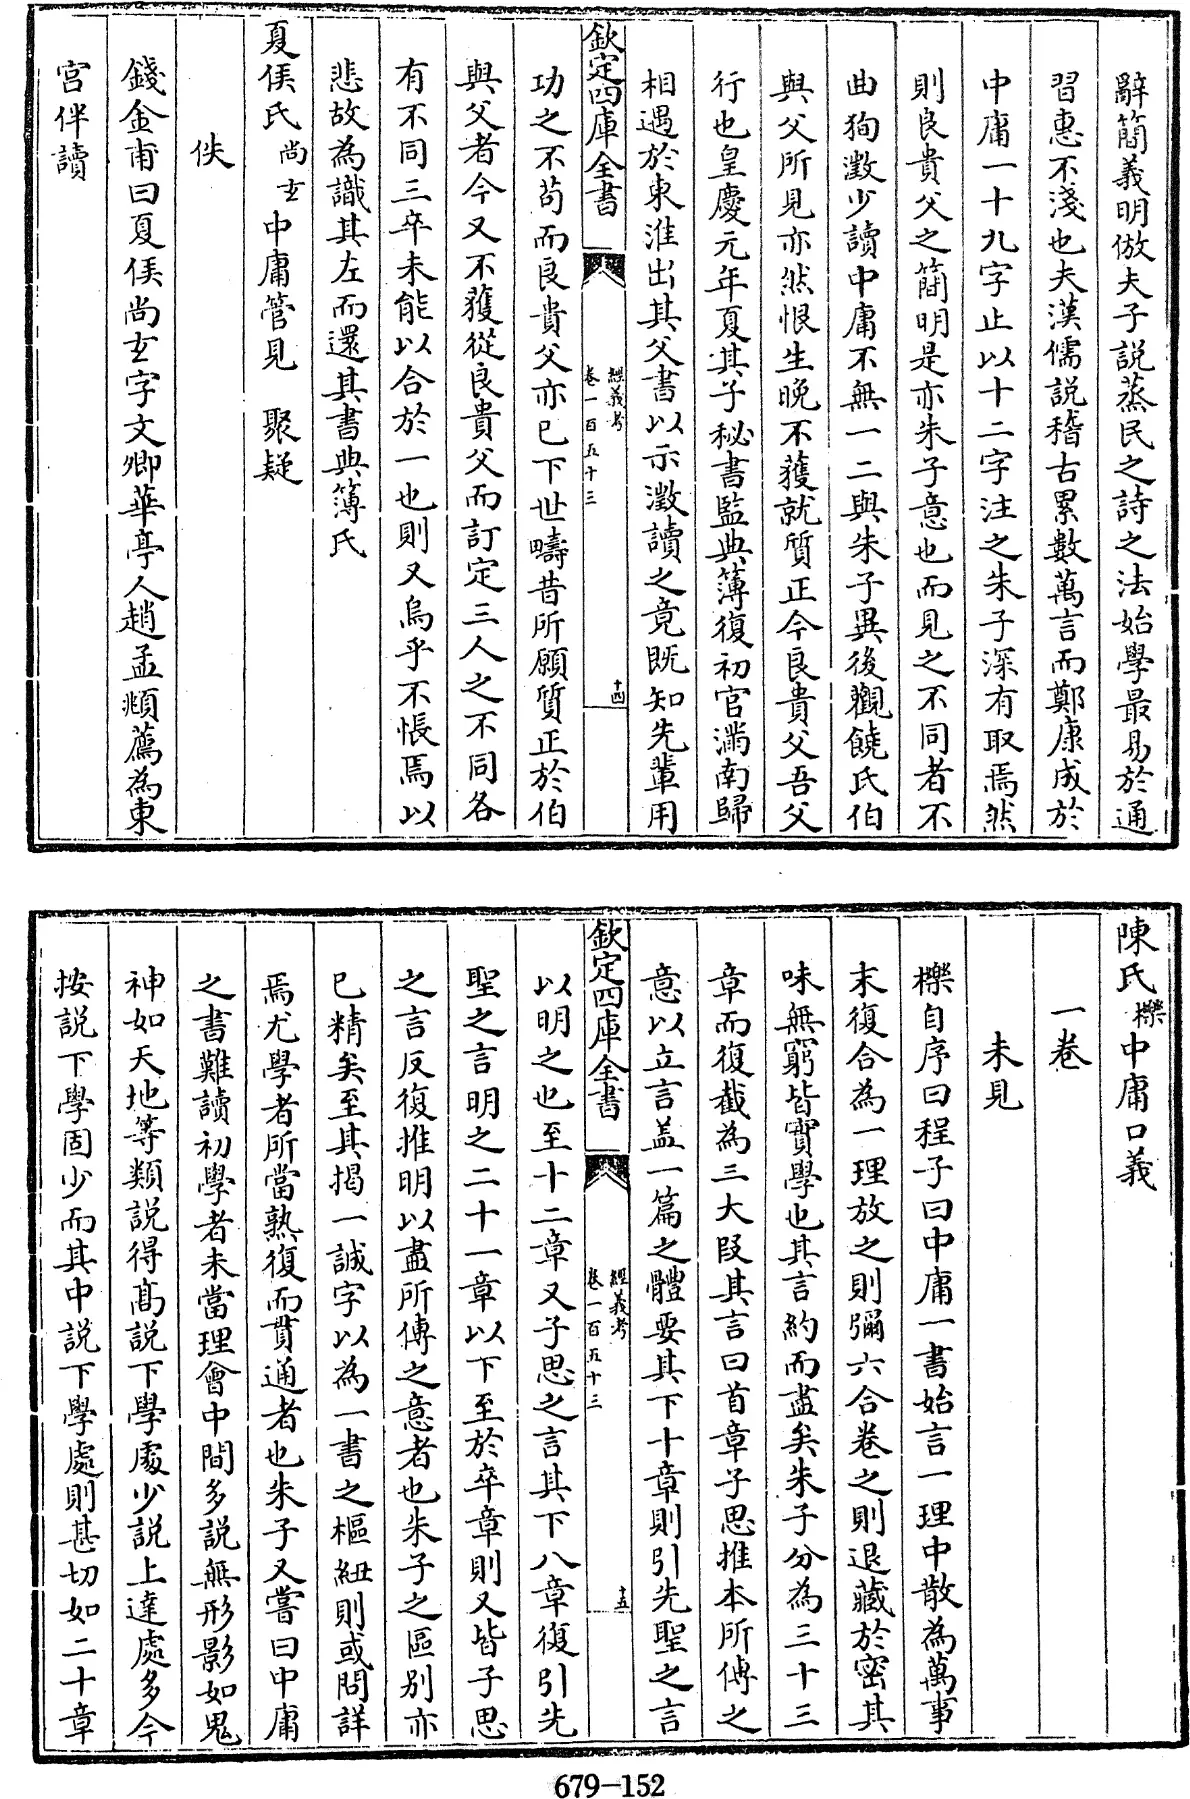 辭簡義明倣夫子說蒸民之詩之法始學最易於通
習惠不淺也夫漢儒說稽古累數萬言而鄭康成於
中庸一十九字止以十二字注之朱子深有取焉然
則良貴父之簡明是亦朱子意也而見之不同者不
曲狥澂少讀中庸不無一二與朱子異後觀饒氏伯
與父所見亦然恨生晚不獲就質正今良貴父吾父
行也皇慶元年夏其子秘書監典簿復初官滿南歸
相遇於東淮出其父書以示澂讀之竟既知先輩用
欽定四庫全書
經義考
卷一百五十三
十四
功之不苟而良貴父亦已下世疇昔所願質正於伯
與父者今又不獲從良貴父而訂定三人之不同各
有不同三卒未能以合於一也則又烏乎不悵焉以
悲故為識其左而還其書典簿氏
夏侯氏尚玄中庸管見 聚疑
佚
錢金甫曰夏侯尚玄字文卿華亭人趙孟頫薦為東
宮伴讀
陳氏櫟中庸口義
一卷
未見
櫟自序曰程子曰中庸一書始言一理中散為萬事
末復合為一理放之則彌六合卷之則退藏於密其
味無窮皆實學也其言約而盡矣朱子分為三十三
章而復截為三大段其言曰首章子思推本所傳之
意以立言盖一篇之體要其下十章則引先聖之言
欽定四庫全書
經義考
卷一百五十三
十五
以明之也至十二章又子思之言其下八章復引先
聖之言明之二十一章以下至於卒章則又皆子思
之言反復推明以盡所傳之意者也朱子之區別亦
已精矣至其揭一誠字以為一書之樞紐則或問詳
焉尤學者所當熟復而貫通者也朱子又嘗曰中庸
之書難讀初學者未當理會中間多說無形影如鬼
神如天地等類說得高說下學處少說上達處多今
按說下學固少而其中說下學處則甚切如二十章
679-152